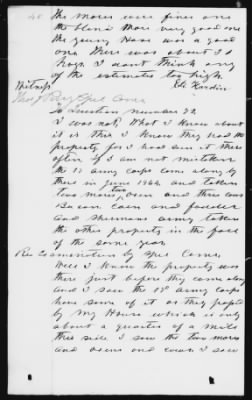 40 the mares were fines ones
the blond mare very good one
the young Horse was a good
one there was about 30
hogs I dont think any
of the estimates too high
Eli Hardin
Witness
by Spel Comr
To Question number 22
I was not, What I know about
it is this I know they had the
property for I had seen it there
often if I am not mistaken
the 17 army corps came along by
there in June 1864 and taken
two mares, oxen and three cows
Bacon Corn and fodder
and Shermans army taken
the other property in the face
of the same year
Re Examination by Spel Comr,
Well I know the property was
there just before they come along
and I saw the 17 army corps
have some of it as they passed
by my House which is only
about a quarter of a mile
this side I saw the two mares
and oxens and cows I saw